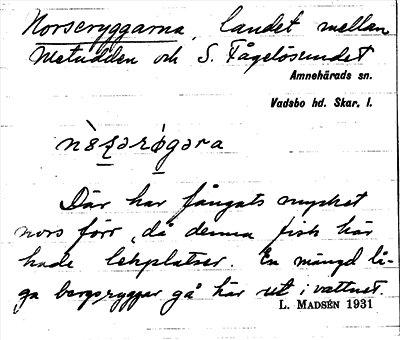 Norseryggarna, landet mellan
Metudden och S. Fågelösundet
Amnehärads sn.
Vadsbo hd. Skar. l.
Där har fångats mycket
nors förr, då denna fisk här
hade lekplatser. En mängd lå-
ga bergsryggar gå här ut i vattnet.
L. MADSÉN 1931